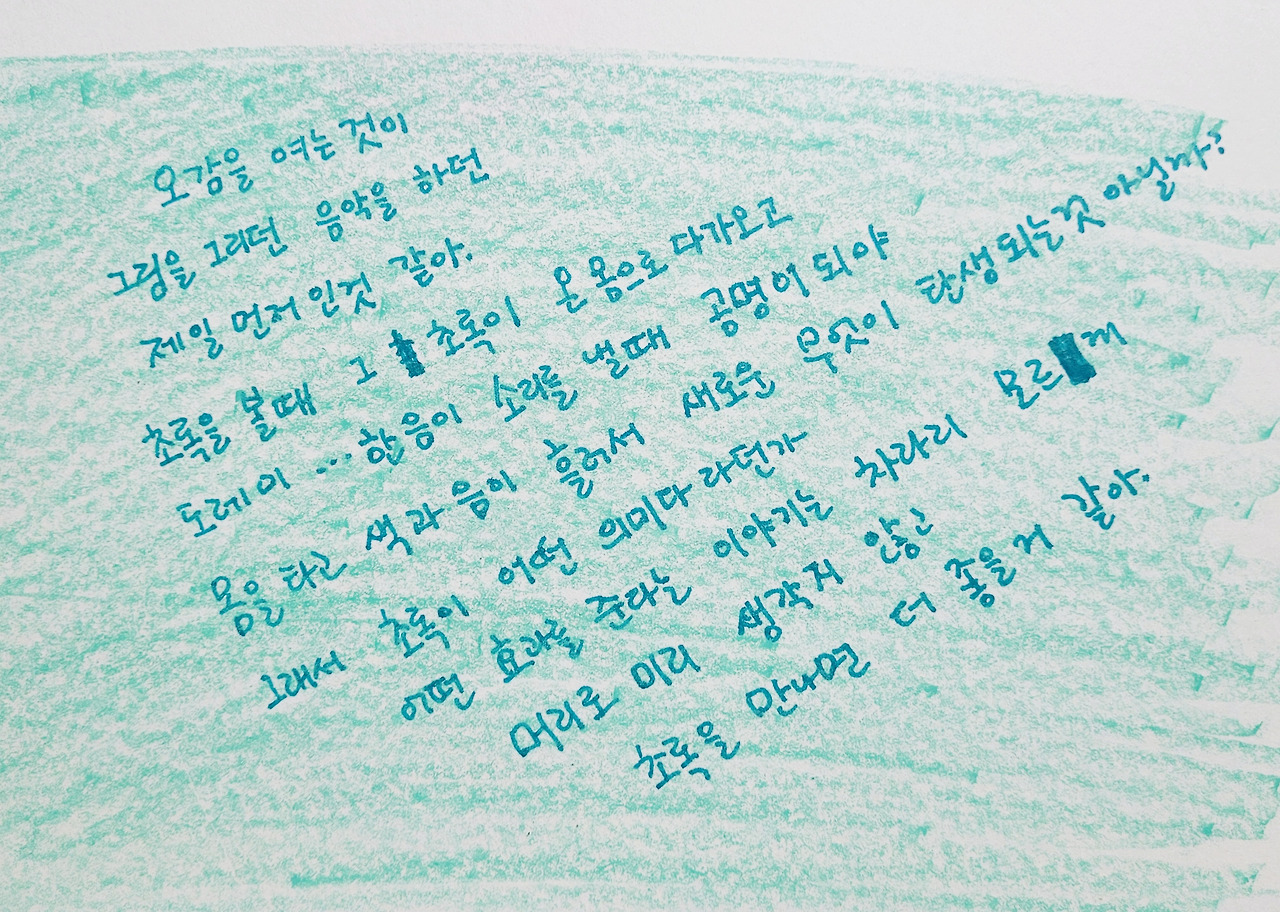 오감을 여는 것이
그림을 그리던 음악을 하던
제일 먼저 인것 같아.
초록을 볼때 그 초록이 온 몸으로 다가오고
도레미 ... 한 음이 소리를 낼때 공명이 되야
몸을 타고 색과 음이 흘러서 새로운 무엇이 탄생되는것 아닐까?
그래서 초록이 어떤 의미다 라던가
어떤 효과를 준다는 이야기는 차라리 모르게
머리로 미리 생각지 않고
초록을 만나면 더 좋을거 같아.